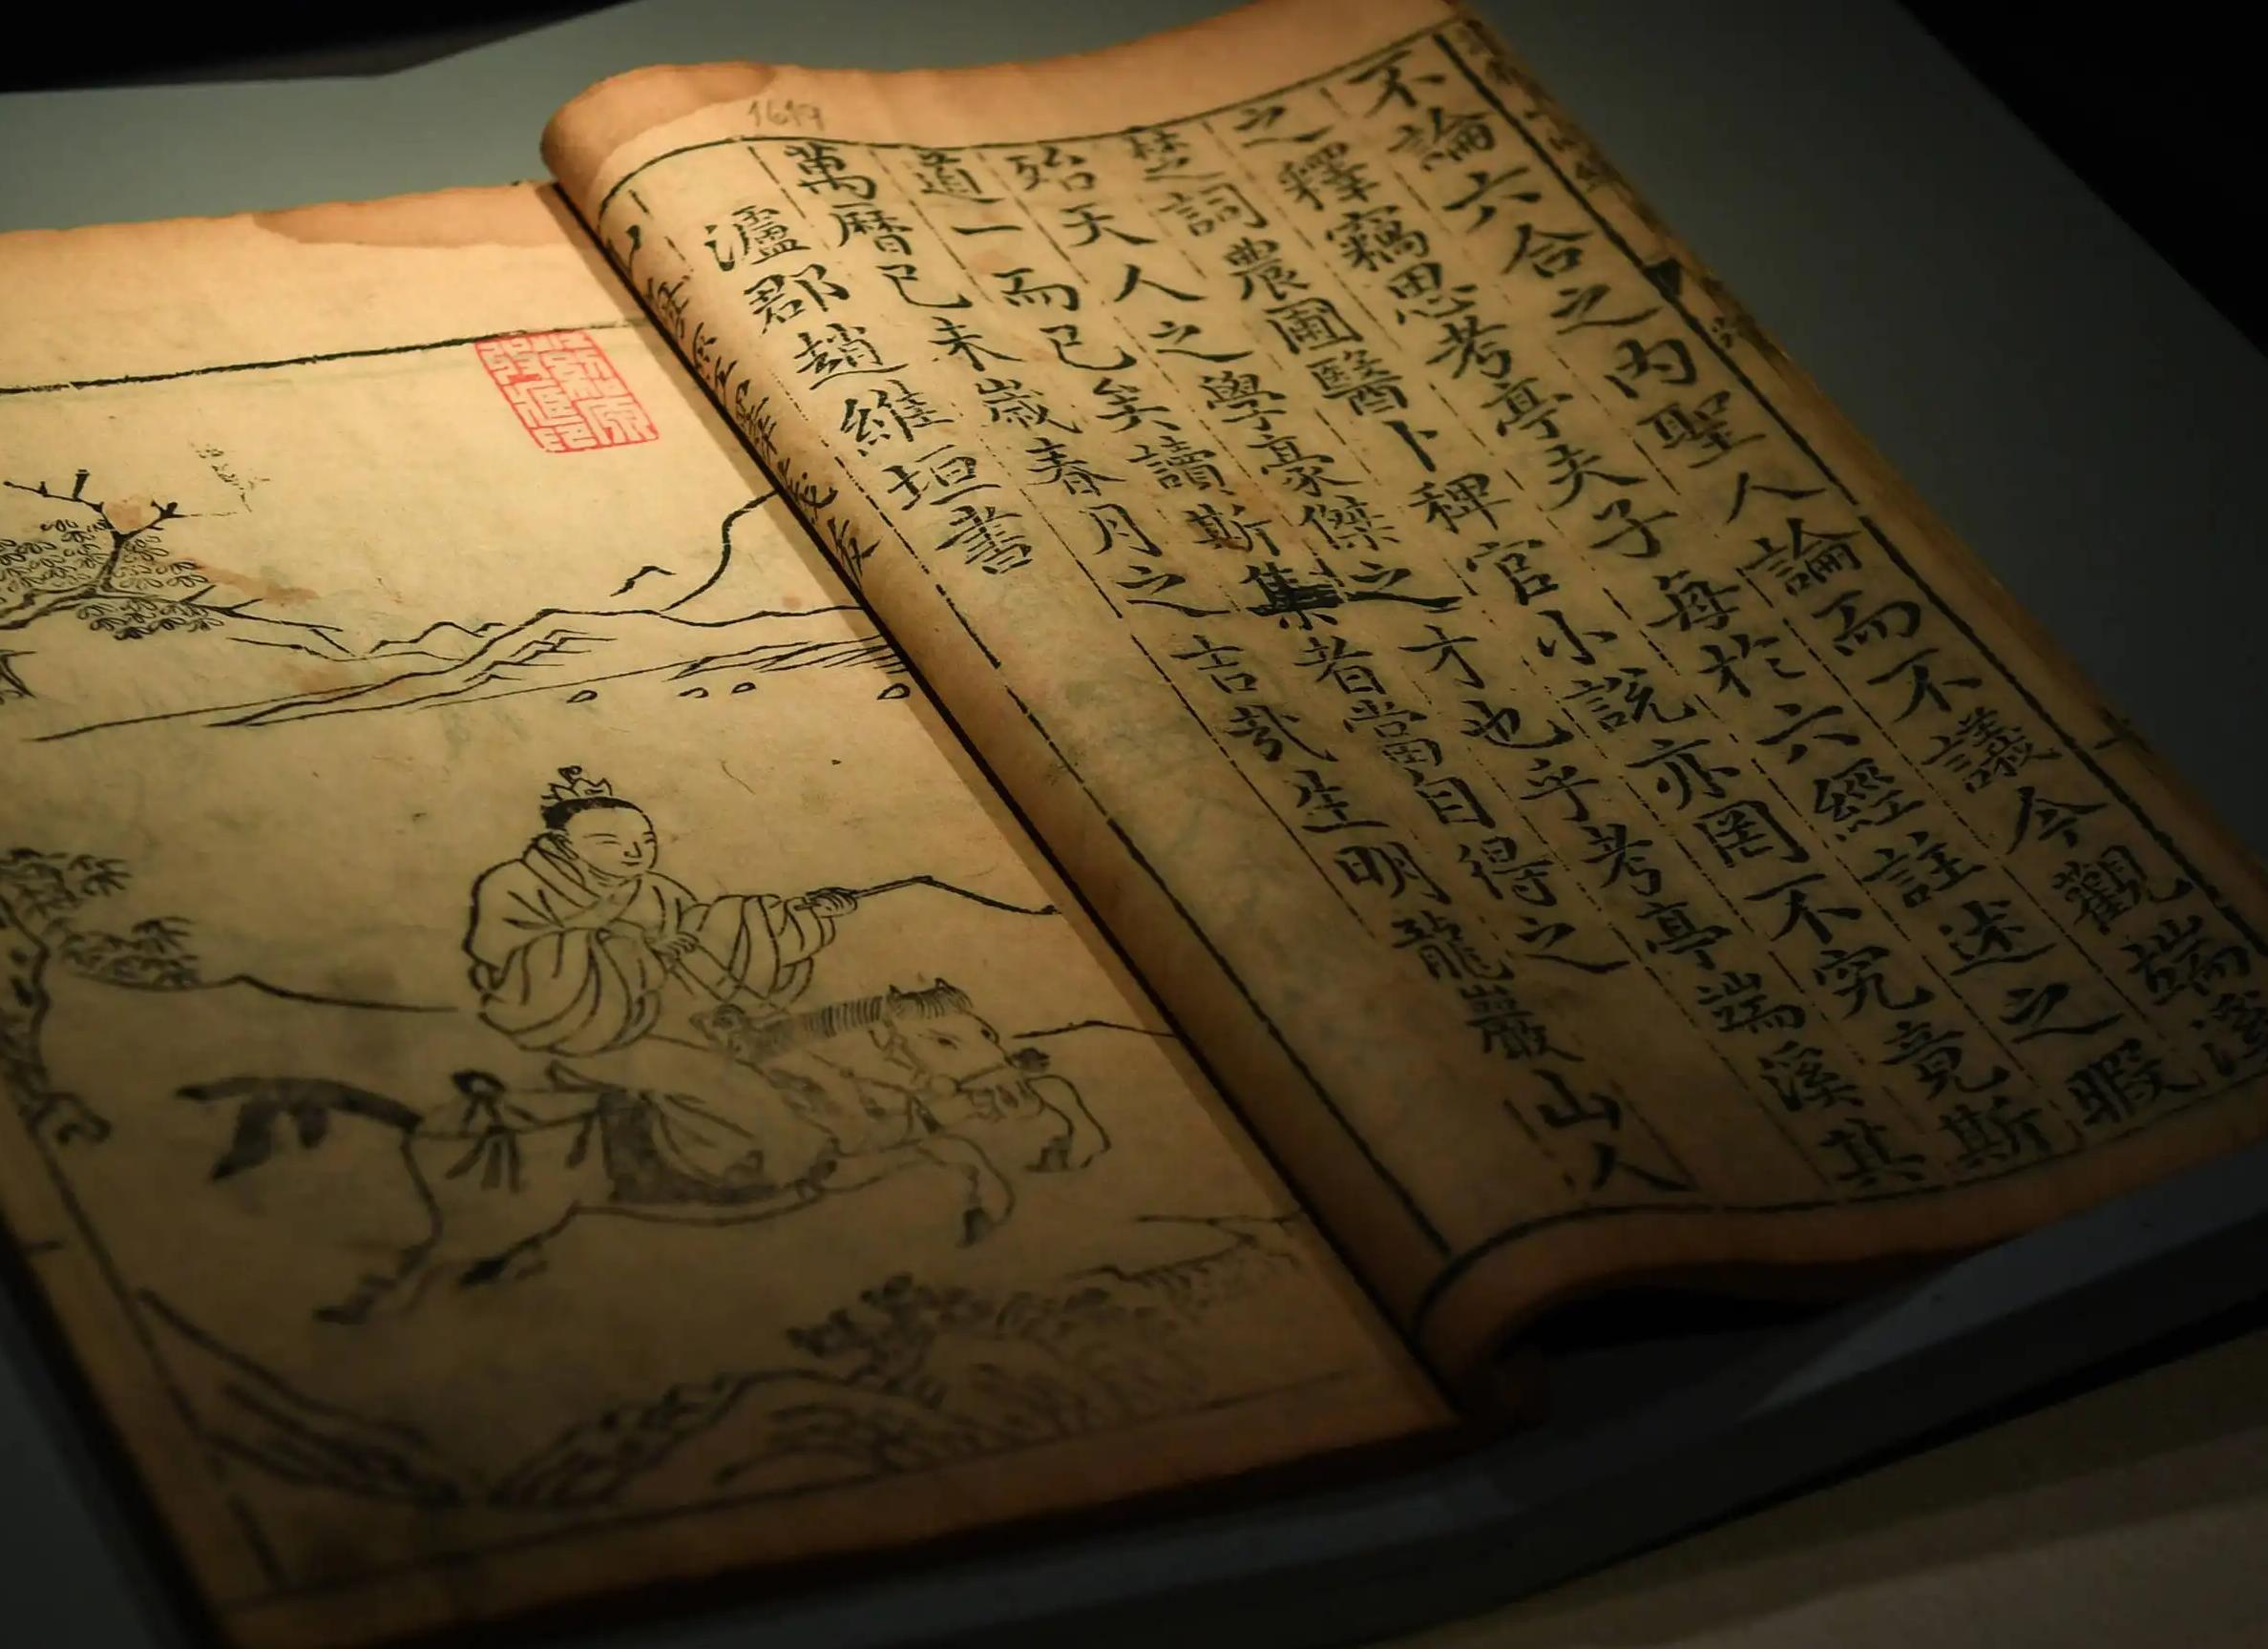 1619
不論六合之內聖人論而不議今觀端溪
之釋竊思考亭夫子每於六經註述之暇
楚詞農圃醫卜稗官小說亦罔不究竟斯
殆天人之學豪傑之才也乎考亭端溪其
道一而已矣讀斯集者當自得之
萬曆己未歲春月之吉哉生明龍巖山人
瀘郡趙維垣書